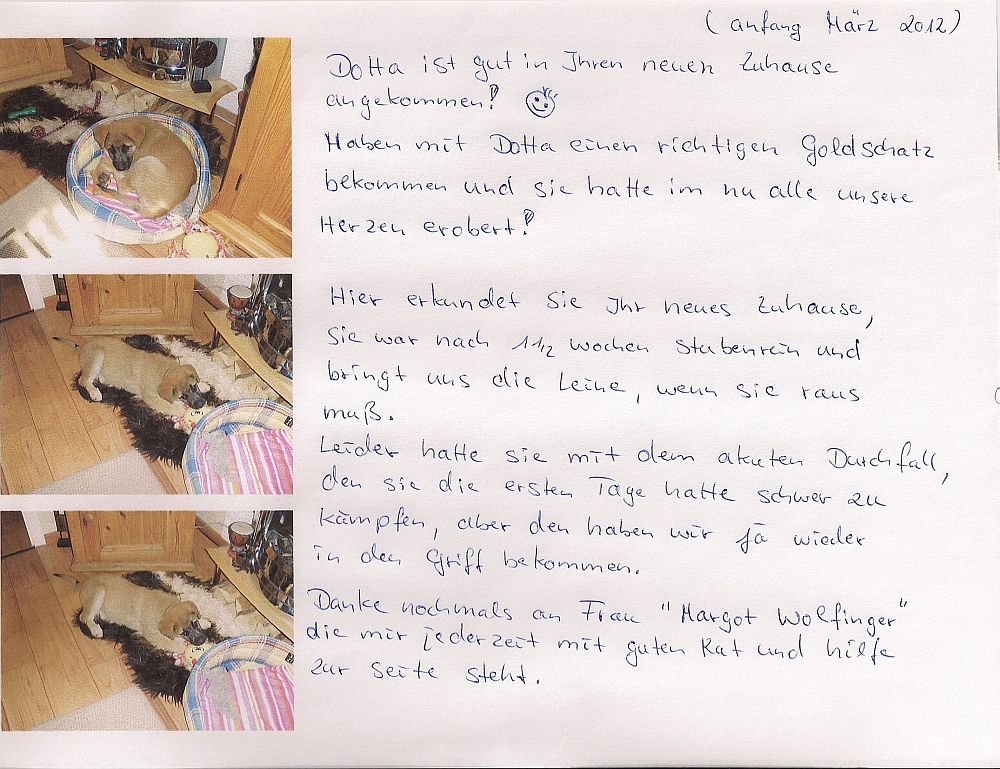 (anfang März 2012)
Dotta ist gut in Ihren neuen Zuhause
angekommen!
Haben mit Dotta einen richtigen Goldschatz
bekommen und sie hatte im nu alle unsere
Herzen erobert!
Hier erkundet Sie Ihr neues Zuhause,
Sie war nach 1 1/2 Wochen Stubenrein und
bringt uns die Leine, wenn sie raus
muß.
Leider hatte sie mit dem akuten Durchfall,
den sie die ersten Tage hatte schwer zu
kämpfen, aber den haben wir ja wieder
in den Griff bekommen.
Danke nochmals an Frau "Margot Wolfinger"
die mir jederzeit mit guten Rat und hilfe
zur seite steht.